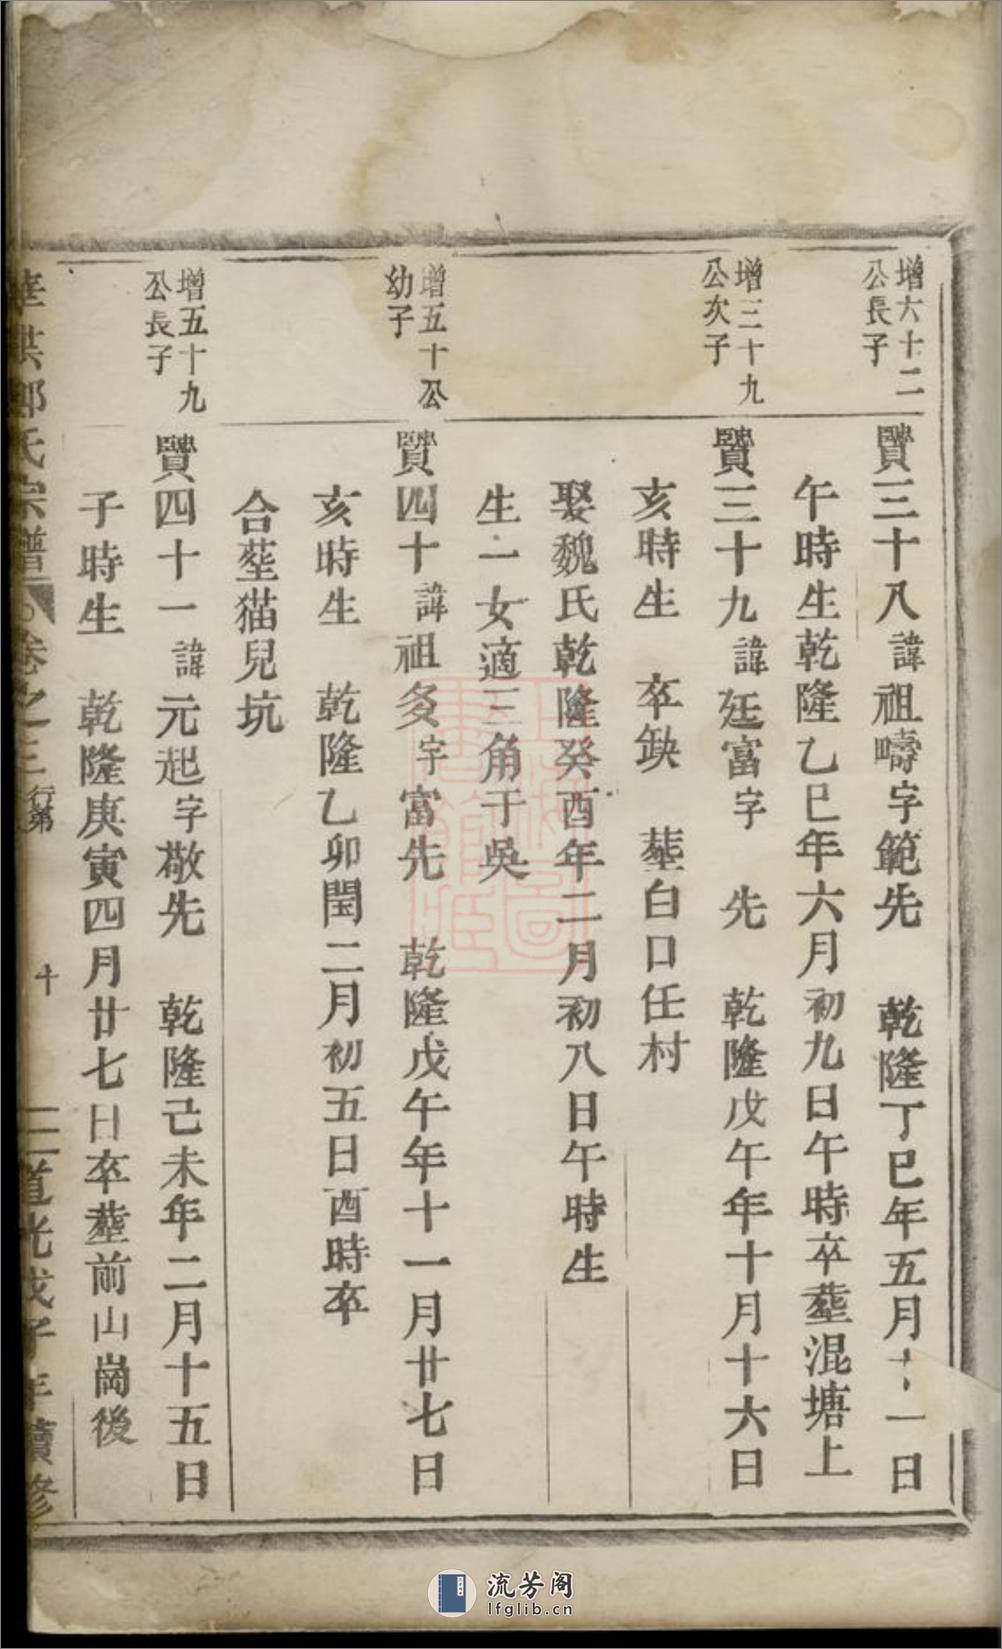 增六十二
公長子
贒三十八諱祖疇字範先 乾隆丁巳年五月十一日
午時生乾隆乙巳年六月初九日午時卒塟混塘上
增三十九
公次子
贒三十九諱廷富字 先 乾隆戊午年十月十六日
亥時生 卒缺 塟白口任村
娶魏氏乾隆癸酉年二月初八日午時生
生一女適三角于吳
增五十公
幼子
贒四十諱祖㕛字富先 乾隆戊午年十一月廿七日
亥時生 乾隆乙卯閏二月初五日酉時卒
合塟猫兒坑
增五十九
公長子
贒四十一諱元起字敬先 乾隆己未年二月十五日
子時生 乾隆庚寅四月廿七日卒塟前山崗後
氏宗譜 卷之三 行第 十 道光戊子年續修
流芳阁
lfglib.cn